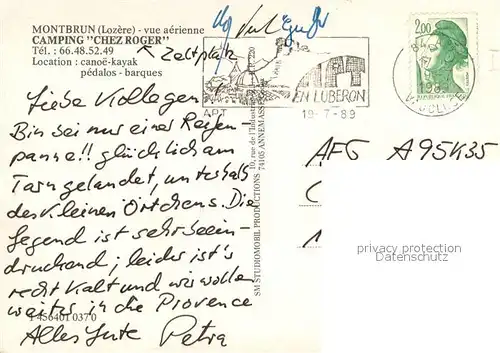 MONTBRUN (Lozère) - vue aérienne
CAMPING "CHEZ ROGER"
Tél. : 66.48.52.49
Location : canoë-kayak
pédalos - barques
Zeltplatz
Liebe Kollegen,
Bin bei nur einer Reifen
panne!! glücklich am
Tarn gelandet, unterhalb
des kleinen Örtchens. Die
Gegend ist sehr beein-
druckend; leider ist's
recht kalt und wir wollen
weiter in die Provence
Alles Gute Petra
1 456401 037 0
SM STUDIOMOBIL PRODUCTIONS
10, rue de l'Industrie
74105 ANNEMASSE
APT
EN LUBERON
19-7-89
2,00
VAUCLUSE
AFG A95K35
privacy protection
Datenschutz